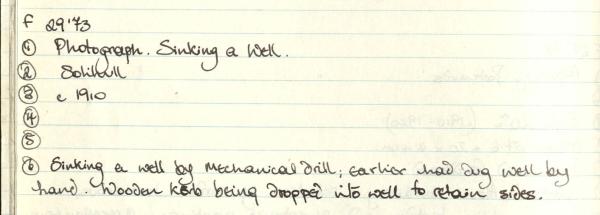 F 29'73
① Photograph. Sinking a Well.
② Solihull
③ c 1910
④
⑤
⑥ Sinking a well by mechanical drill; earlier had dug well by
hand. Wooden kerb being dropped into well to retain sides.